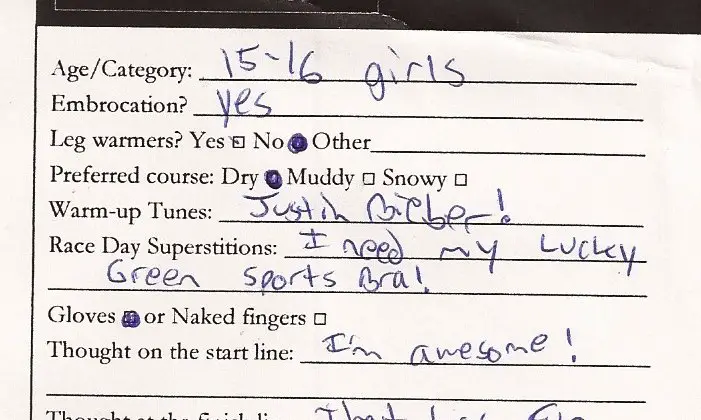 Age/Category: 15-16 girls
Embrocation? yes
Leg warmers? Yes □ No ● Other
Preferred course: Dry ● Muddy □ Snowy □
Warm-up Tunes: Justin Bieber!
Race Day Superstitions: I need my Lucky
Green sports Bra!
Gloves ■ or Naked fingers □
Thought on the start line: I'm awesome!